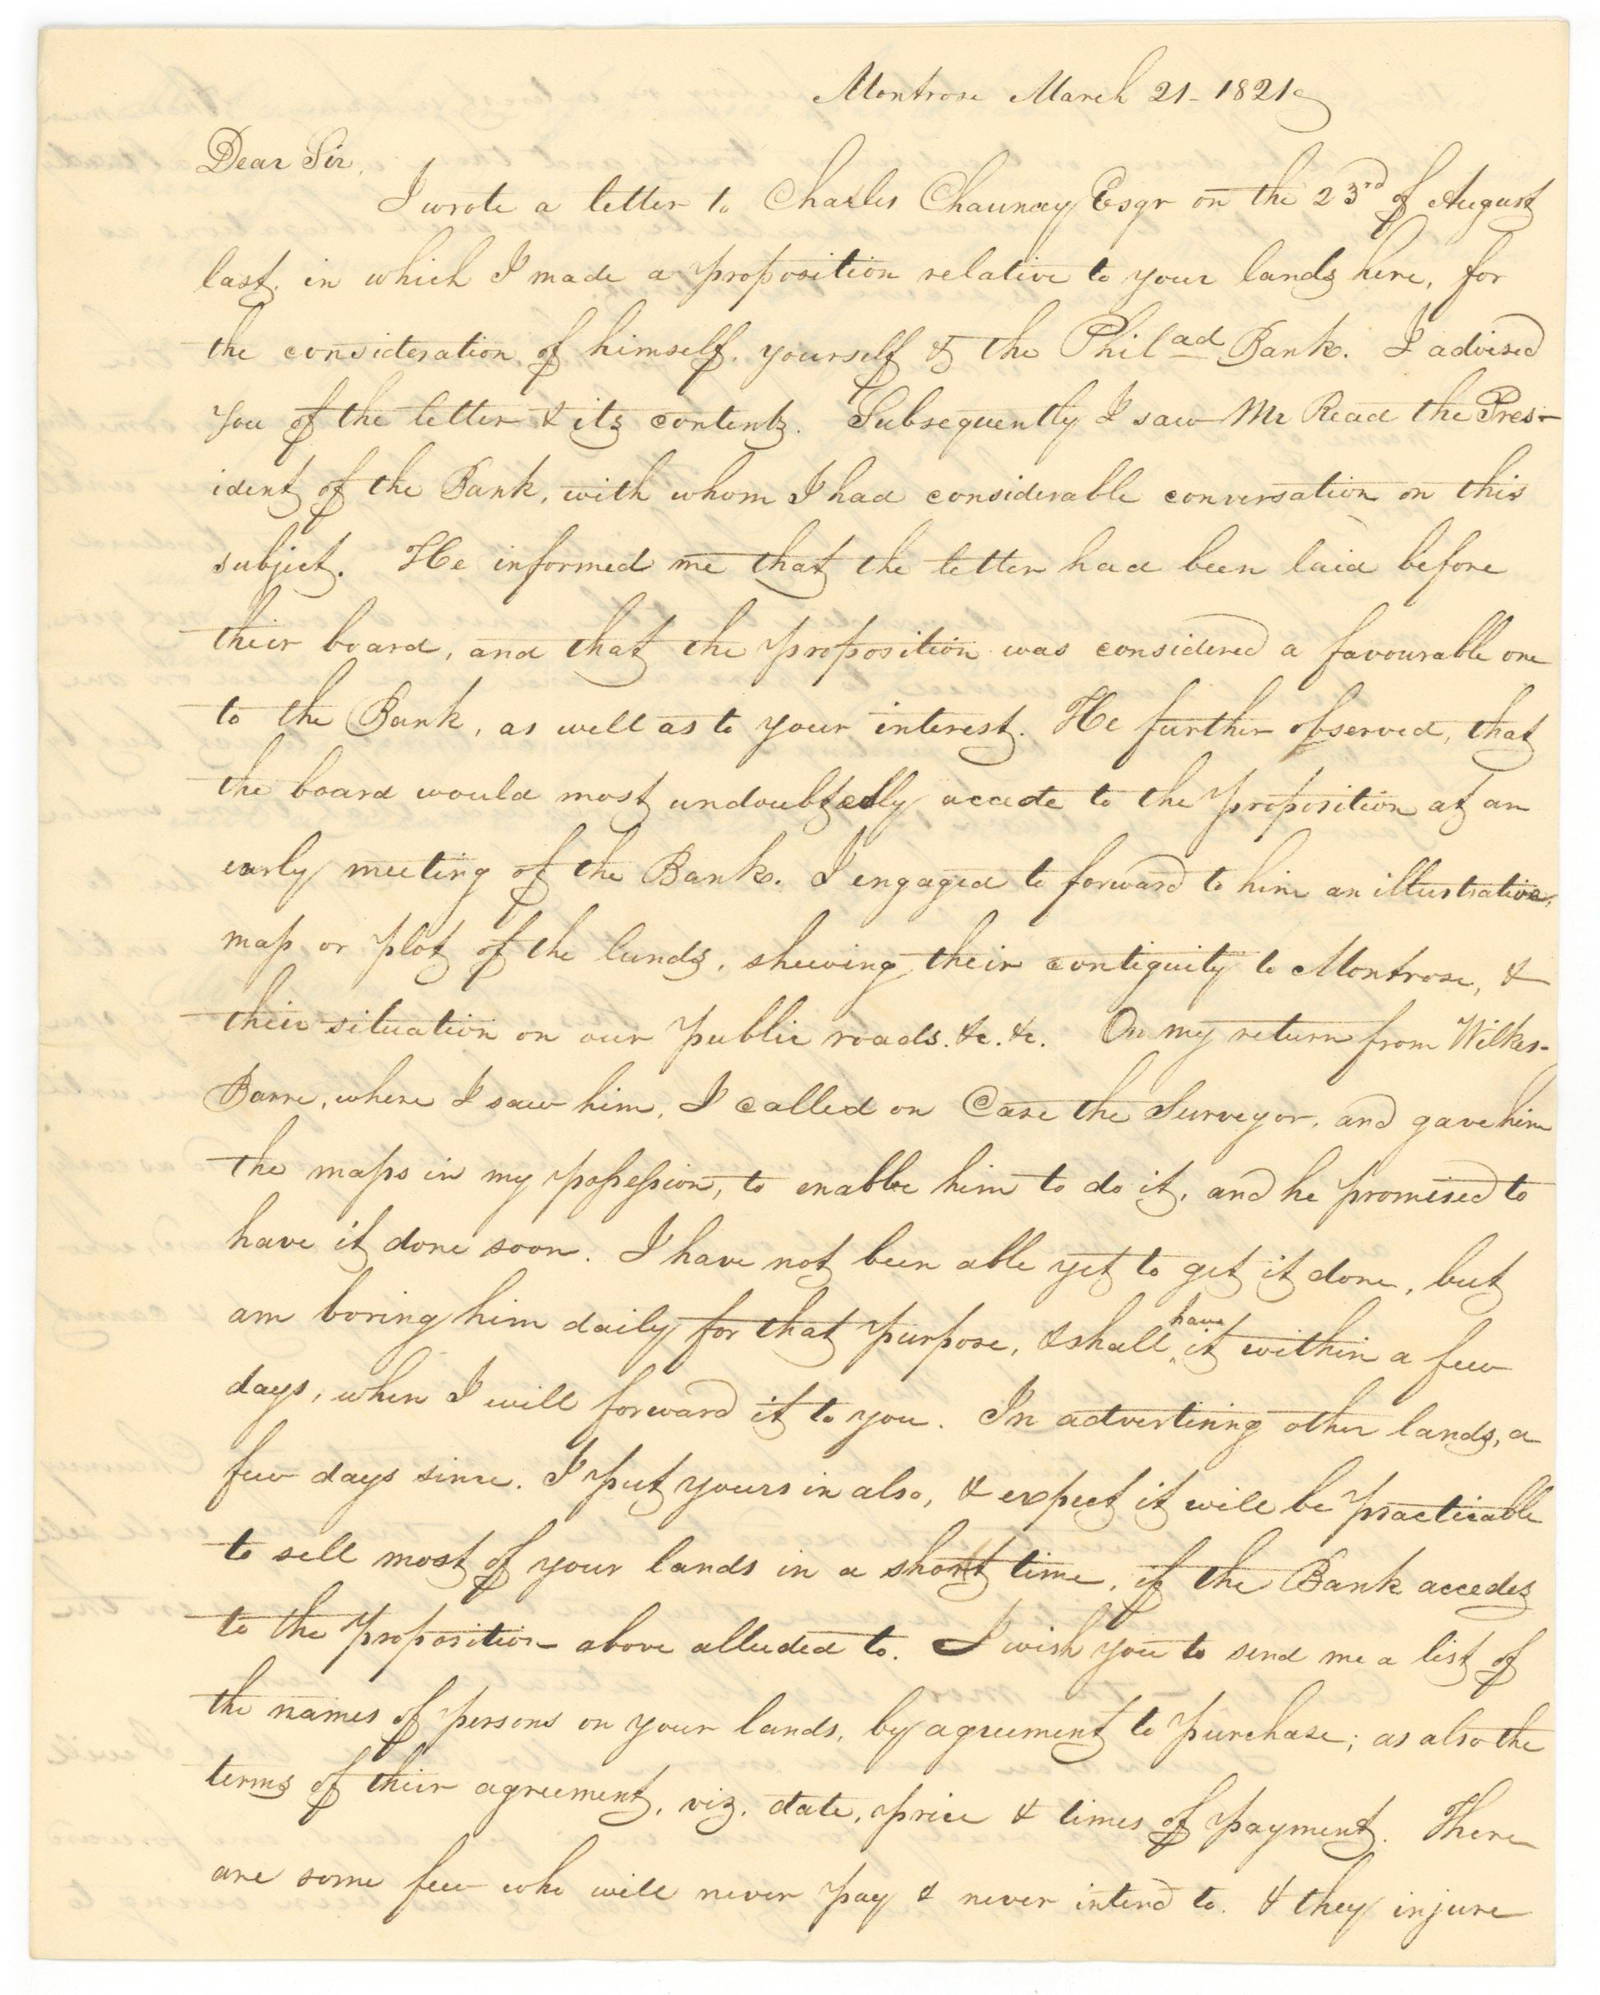 Montrose March 21 - 1821
Dear Sir,
I wrote a letter to Charles Chauncey Esqr on the 23rd of August
last, in which I made a proposition relative to your lands here, for
the consideration of himself, yourself & the Philad Bank. I advised
you of the letter & its contents. Subsequently I saw Mr Read the Pres-
ident of the Bank, with whom I had considerable conversation on this
subject. He informed me that the letter had been laid before
their board, and that the proposition was considered a favourable one
to the Bank, as well as to your interest. He further observed, that
the board would most undoubtedly accede to the proposition at an
early meeting of the Bank. I engaged to forward to him an illustrative
map or plot of the lands, shewing their contiguity to Montrose, &
their situation on our public roads. &c. &c. On my return from Wilkes-
Barre, where I saw him, I called on Case the Surveyor, and gave him
the maps in my possession, to enable him to do it, and he promised to
have it done soon. I have not been able yet to get it done, but
am boring him daily for that purpose, & shall have it within a few
days, when I will forward it to you. In advertising other lands, a
few days since, I put yours in also, & expect it will be practicable
to sell most of your lands in a short time, if the Bank accedes
to the proposition above alluded to. I wish you to send me a list of
the names of persons on your lands, by agreement to purchase; as also the
terms of their agreement, viz. date, price & times of payment. There
are some few who will never pay & never intend to. & they injure